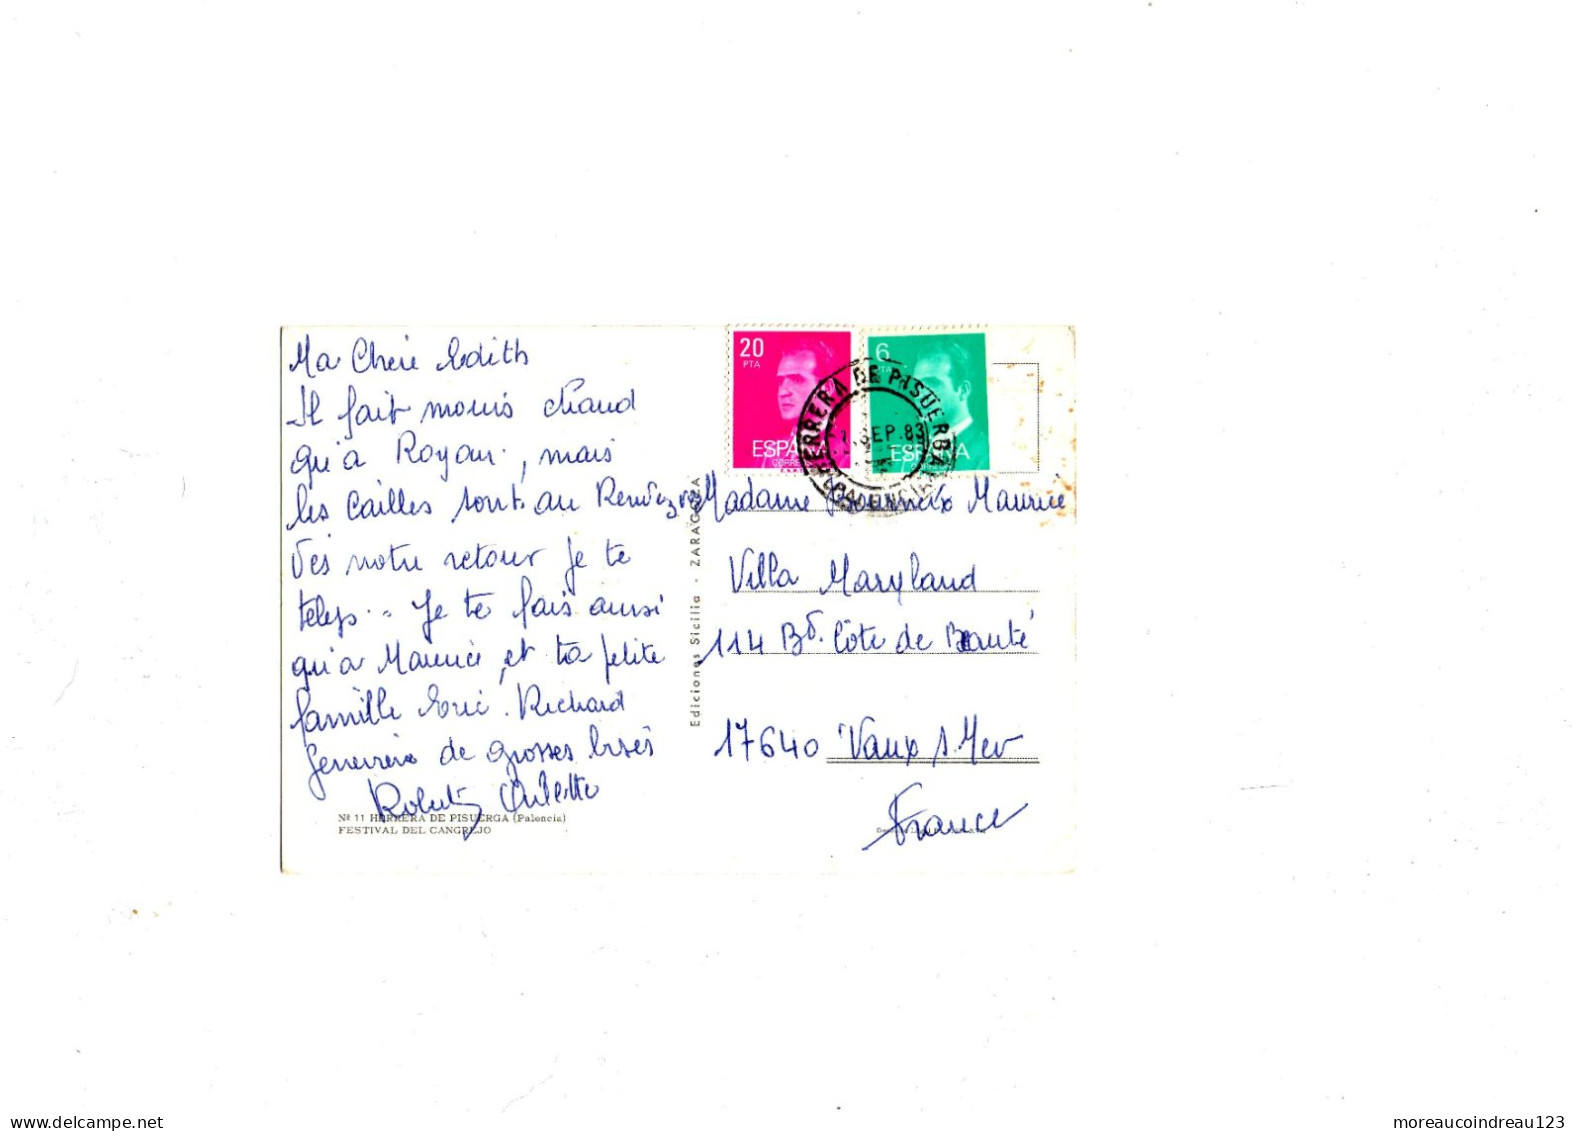 Ma Chère Edith
Il fait moins chaud
qu'a Royan, mais
les Cailles sont au Rendez vs
Dès notre retour je te
teleph. Je te fais aussi
qu'a Maurice et ta petite
famille Eric. Richard
de grosses bises
Nº 11 HERRERA DE PISUERGA (Palencia)
FESTIVAL DEL CANGREJO
Ediciones Sicilia - ZARAGOZA
20
PTA
ESPAÑA
CORREOS
6
PTA
ESPAÑA
HERRERA DE PISUERGA
SEP. 83
(PALENCIA)
Madame Maurice
Villa Maryland
114 Bd. Côte de Beauté
17640 Vaux s. Mer
France
delcampe.net
moreaucoindreau123